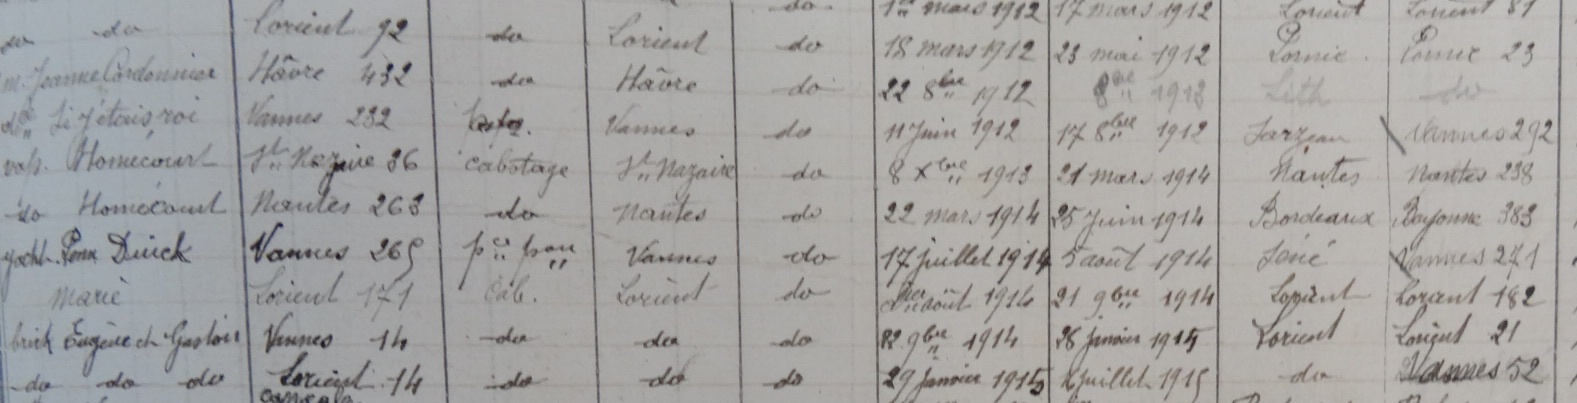 do 1er mars 1912 17 mars 1912 Lorient Lorient 81
do do Lorient 92 do Lorient do 18 mars 1912 23 mai 1912 Pornic Pornic 23
m. Jeanne Cordonnier Hâvre 432 do Hâvre do 22 8bre 1912 8bre 1913 Leth do
do Si j'étais roi Vannes 232 Vannes do 11 Juin 1912 17 8bre 1912 Sarzeau Vannes 292
vap. Homécourt St Nazaire 36 cabotage St Nazaire do 8 Xbre 1913 21 mars 1914 Nantes Nantes 238
do Homécourt Nantes 263 do Nantes do 22 mars 1914 25 Juin 1914 Bordeaux Bayonne 383
yacht Penn Duick Vannes 265 Vannes do 17 juillet 1914 5 août 1914 Séné Vannes 271
Marie Lorient 171 Cab. Lorient do août 1914 21 9bre 1914 Lorient Lorient 182
brick Eugène et Gaston Vannes 14 do do do 22 9bre 1914 28 janvier 1915 Lorient Lorient 21
do do do Lorient 14 do do do 29 Janvier 1915 juillet 1915 do Vannes 52